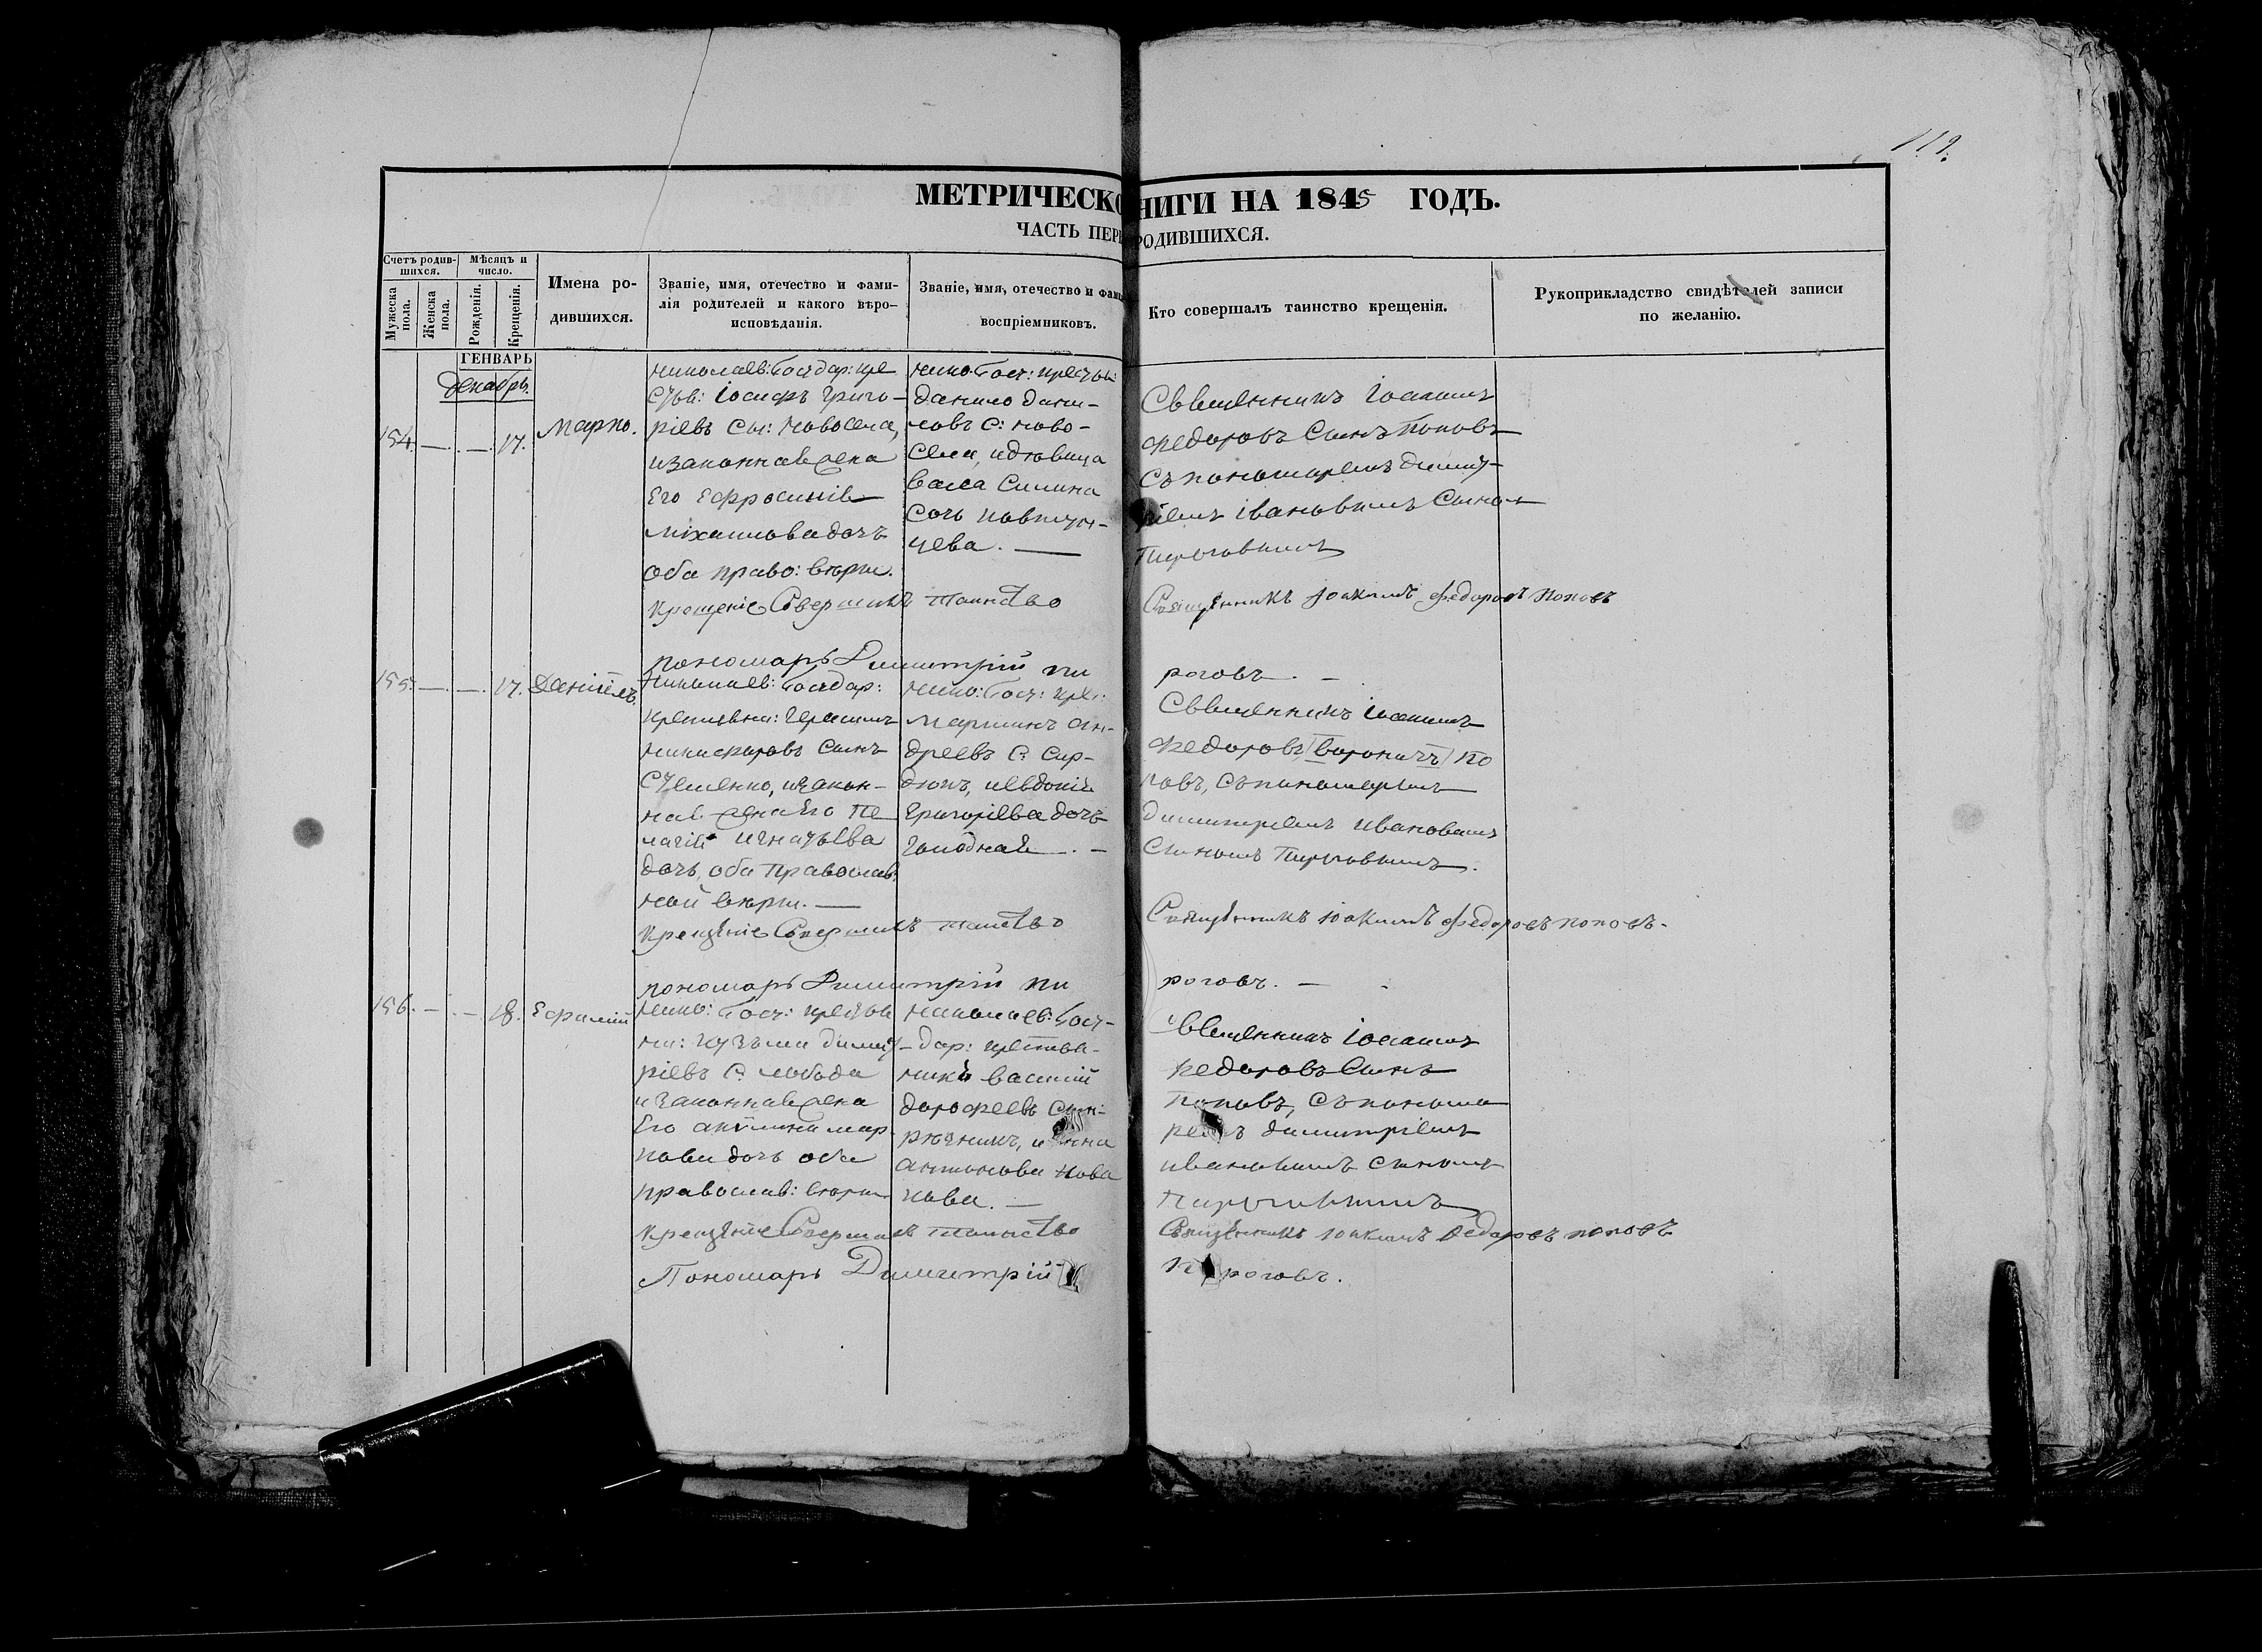 119.
МЕТРИЧЕСКО НИГИ НА 1845 ГОДЪ.
ЧАСТЬ ПЕРВ РОДИВШИХСЯ.
Счетъ родив-
шихся.
Мужеска пола.
Женска пола.
Мѣсяцъ и
число.
Рожденія.
Крещенія.
Имена ро-
дившихся.
Званіе, имя, отечество и фами-
лія родителей и какого вѣро-
исповѣданія.
Званіе, имя, отечество и фам
воспріемниковъ.
Кто совершалъ таинство крещенія.
Рукоприкладство свидѣтелей записи
по желанію.
ГЕНВАРЬ
декабрь.
154. — . — . 17.
Марко.
Николаев: Государ: кре
стьв: Іосифъ Григо-
ріевъ Сы: Новосела,
и законная жена
Его Ефросинія
Міхаилова дочь
оба право: вѣры.
Нико: Гос: крестья:
Данило Дани-
ловъ С: Ново-
села, и дѣвица
Васса Симина
Священникъ Іоакимъ
Федоровъ Сынъ Поповъ
Съ пономаремъ Димит-
ріемъ Івановымъ Сыном
Пироговымъ
Крещеніе Совершилъ таинство
Священникъ Іоакимъ Федоровъ Поповъ
пономарь Димитрій Пи
роговъ. —
155. — . — . 17.
Даніилъ.
Николаев: Государ:
Герасимъ
Никифоровъ Сынъ
Стеценко, и закон-
ная жена Его Пе
лагія Игнатьева
дочь, оба Православ:
ной вѣры. —
Нико: Гос: кре:
Мартинъ Ан-
дреевъ С: Сер-
дюкъ, и Евдокія
Григоріева дочь
Голодная. —
Священникъ Іоакимъ
Федоровъ По
повъ, Съ пономаремъ
Димитріемъ Ивановымъ
Сыномъ Пироговымъ.
Крещеніе Совершилъ таинство
Священникъ Іоакимъ Федоровъ Поповъ.
пономарь Димитрій Пи
роговъ. —
156. — . — 18.
Ефимій
Нико: Гос: крестья
ни: Кузьма Димит-
ріевъ С: Лобода
и законная жена
Его Акилина Мар
кова дочь оба
православ: вѣры
Николаев: Госу-
дар: крестья-
никъ Василій
Дорофеевъ Сын:
и Анна
Антонова Нова
кова. —
Священникъ Іоакимъ
Федоровъ Сынъ
Поповъ, Съ понома
ремъ Димитріемъ
Ивановымъ Сыномъ
Пироговымъ
Крещеніе Совершилъ таинство
Священникъ Іоакимъ Федоровъ Поповъ
Пономарь Димитрій
Пироговъ.